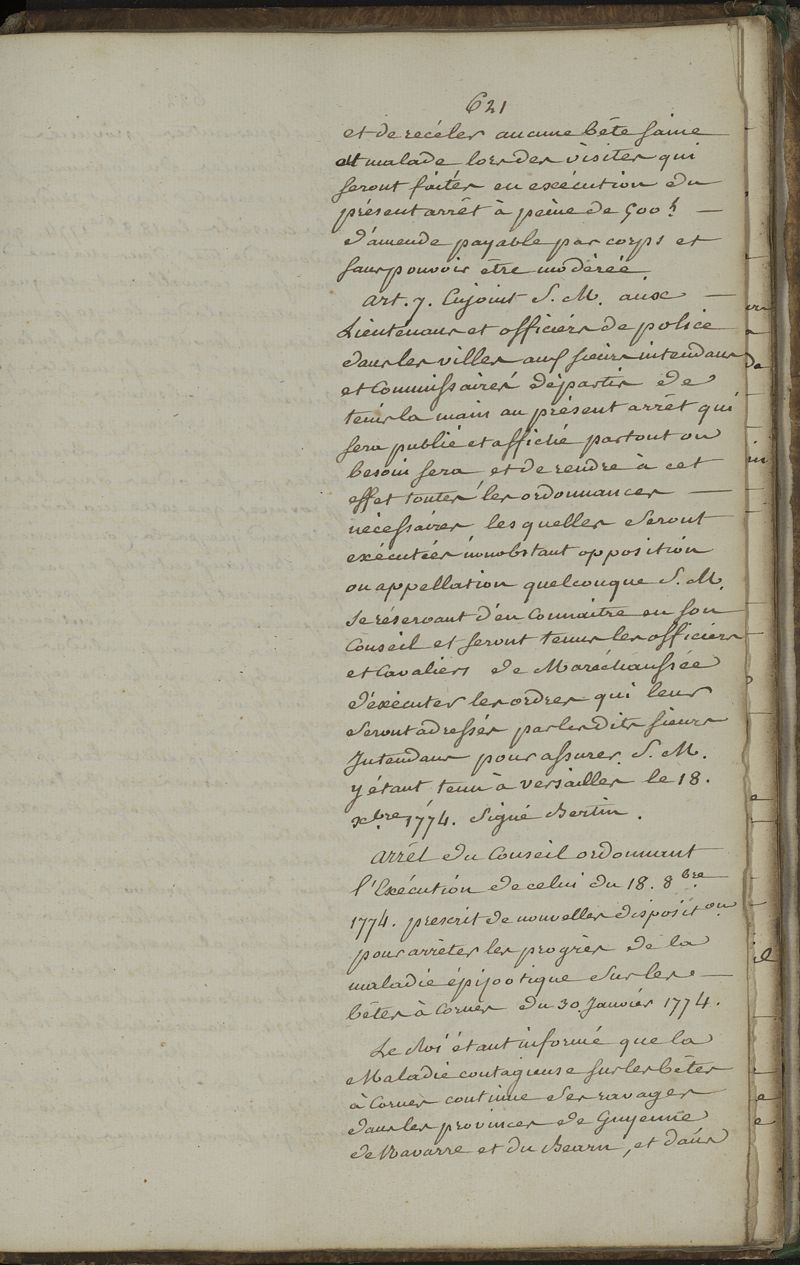 621
et de recéler aucune bête saine
et malade lors des visites qui
seront faites en exécution du
présent arrêt à peine de 500 h —
d'amende payable par corps et
sans pouvoir être modérée.
Art. 7. Enjoint S. M. aux —
Lieutenans et officiers de police
dans les villes aux sieurs intendans
et Commissaires départis de
tenir la main au présent arrêt qui
sera publié et affiché partout ou
besoin sera et de rendre à cet
effet toutes les ordonnances —
nécessaires lesquelles seront
exécutées nonobstant opposition
ou appellation quelconque S. M.
se réservant d'en connaitre en son
Conseil et seront tenus les officiers
et Cavaliers de Maréchaussée
d'éxécuter les ordres qui leur
seront adressés par les dits sieurs
Intendans pour assurer. S. M.
y étant tenu à versailles le 18.
xbre 1774. Signé Bertin.
Arrêt du Conseil ordonnant
l'Exécution de celui du 18. 8bre
1774. prescrit de nouvelles disposit.on
pour arrêter les progrès de la
maladie épizootique sur les —
bêtes à Cornes du 30 Janvier 1774.
Le Roi étant informé que la
Maladie contagieuse sur les bêtes
à Cornes continue ses ravages
dans les provinces de Guyenne
de Navarre et du Bearn, et dans